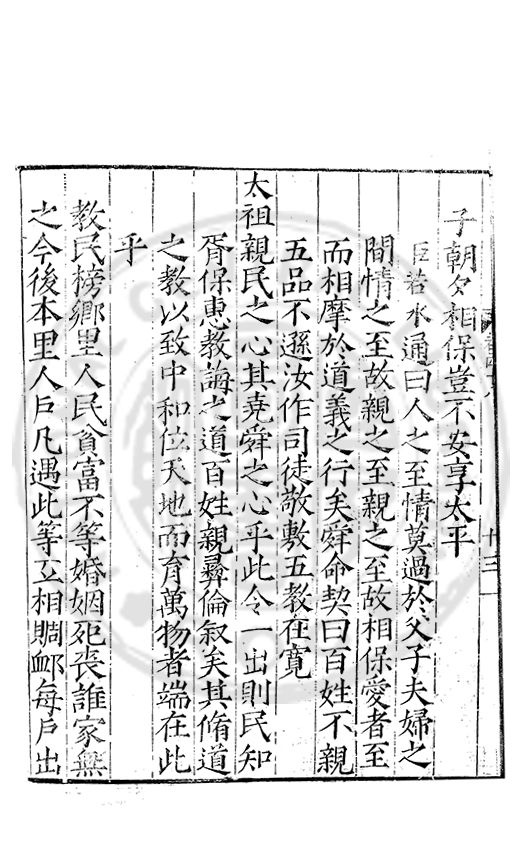 子朝夕相保豈不安享太平
臣若水通曰人之至情莫過於父子夫婦之
間情之至故親之至親之至故相保愛者至
而相摩於道義之行矣舜命契曰百姓不親
五品不遜汝作司徒敬敷五教在寬
太祖親民之心其堯舜之心乎此令一出則民知
胥保惠教誨之道百姓親彞倫叙矣其脩道
之教以致中和位天地而育萬物者端在此
乎
教民榜鄉里人民貧富不等婚姻死丧誰家無
之今後本里人戶凡遇此等互相賙䘏每戶出